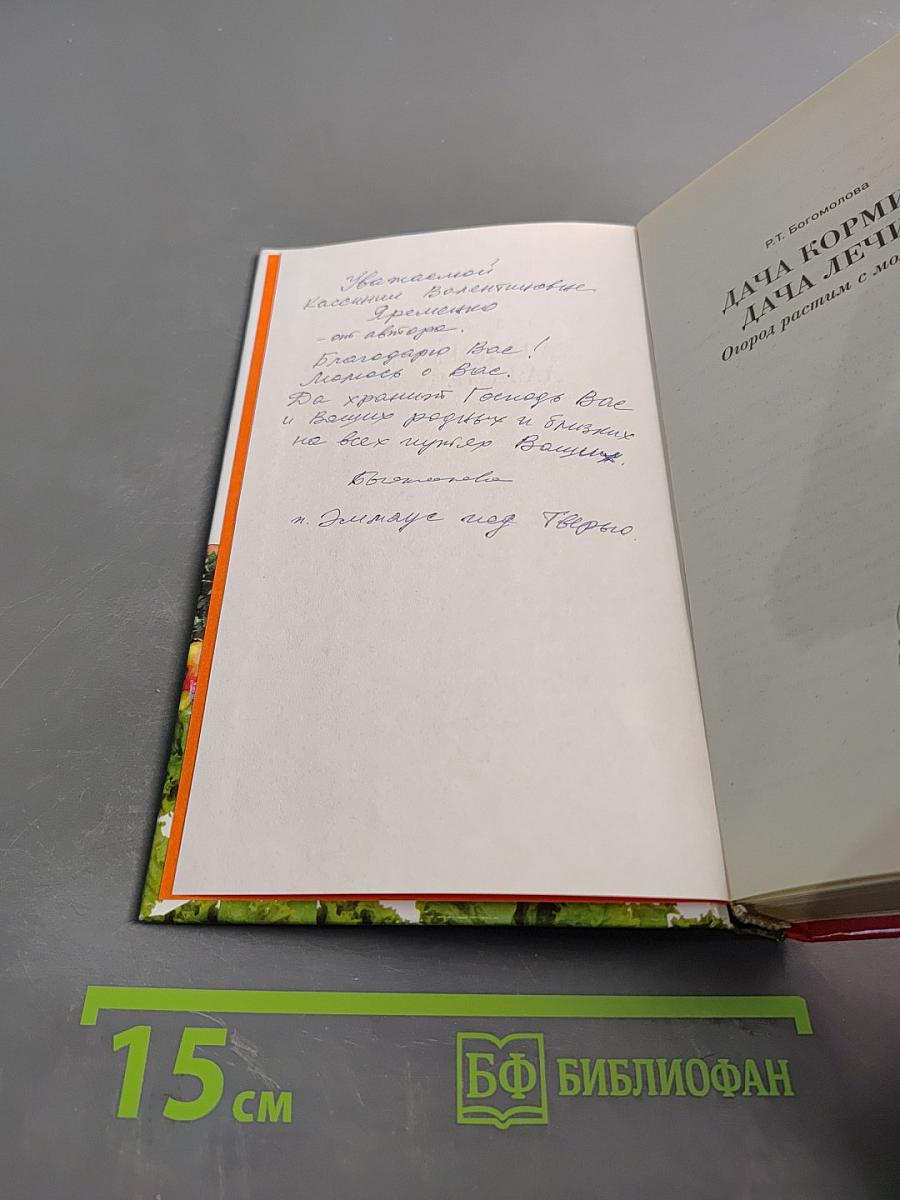 Уважаемой
Кассинии Валентиновне
Яременко
- от автора.
Благодарю Вас!
Молюсь о Вас.
Да хранит Господь Вас
и Ваших родных и близких
на всех путях Ваших.
п. Эммаус под Тверью.
Р.Т. Богомолова
ДАЧА КОРМИ
ДАЧА ЛЕЧИ
Огород растим с мо
15 см
БФ БИБЛИОФАН